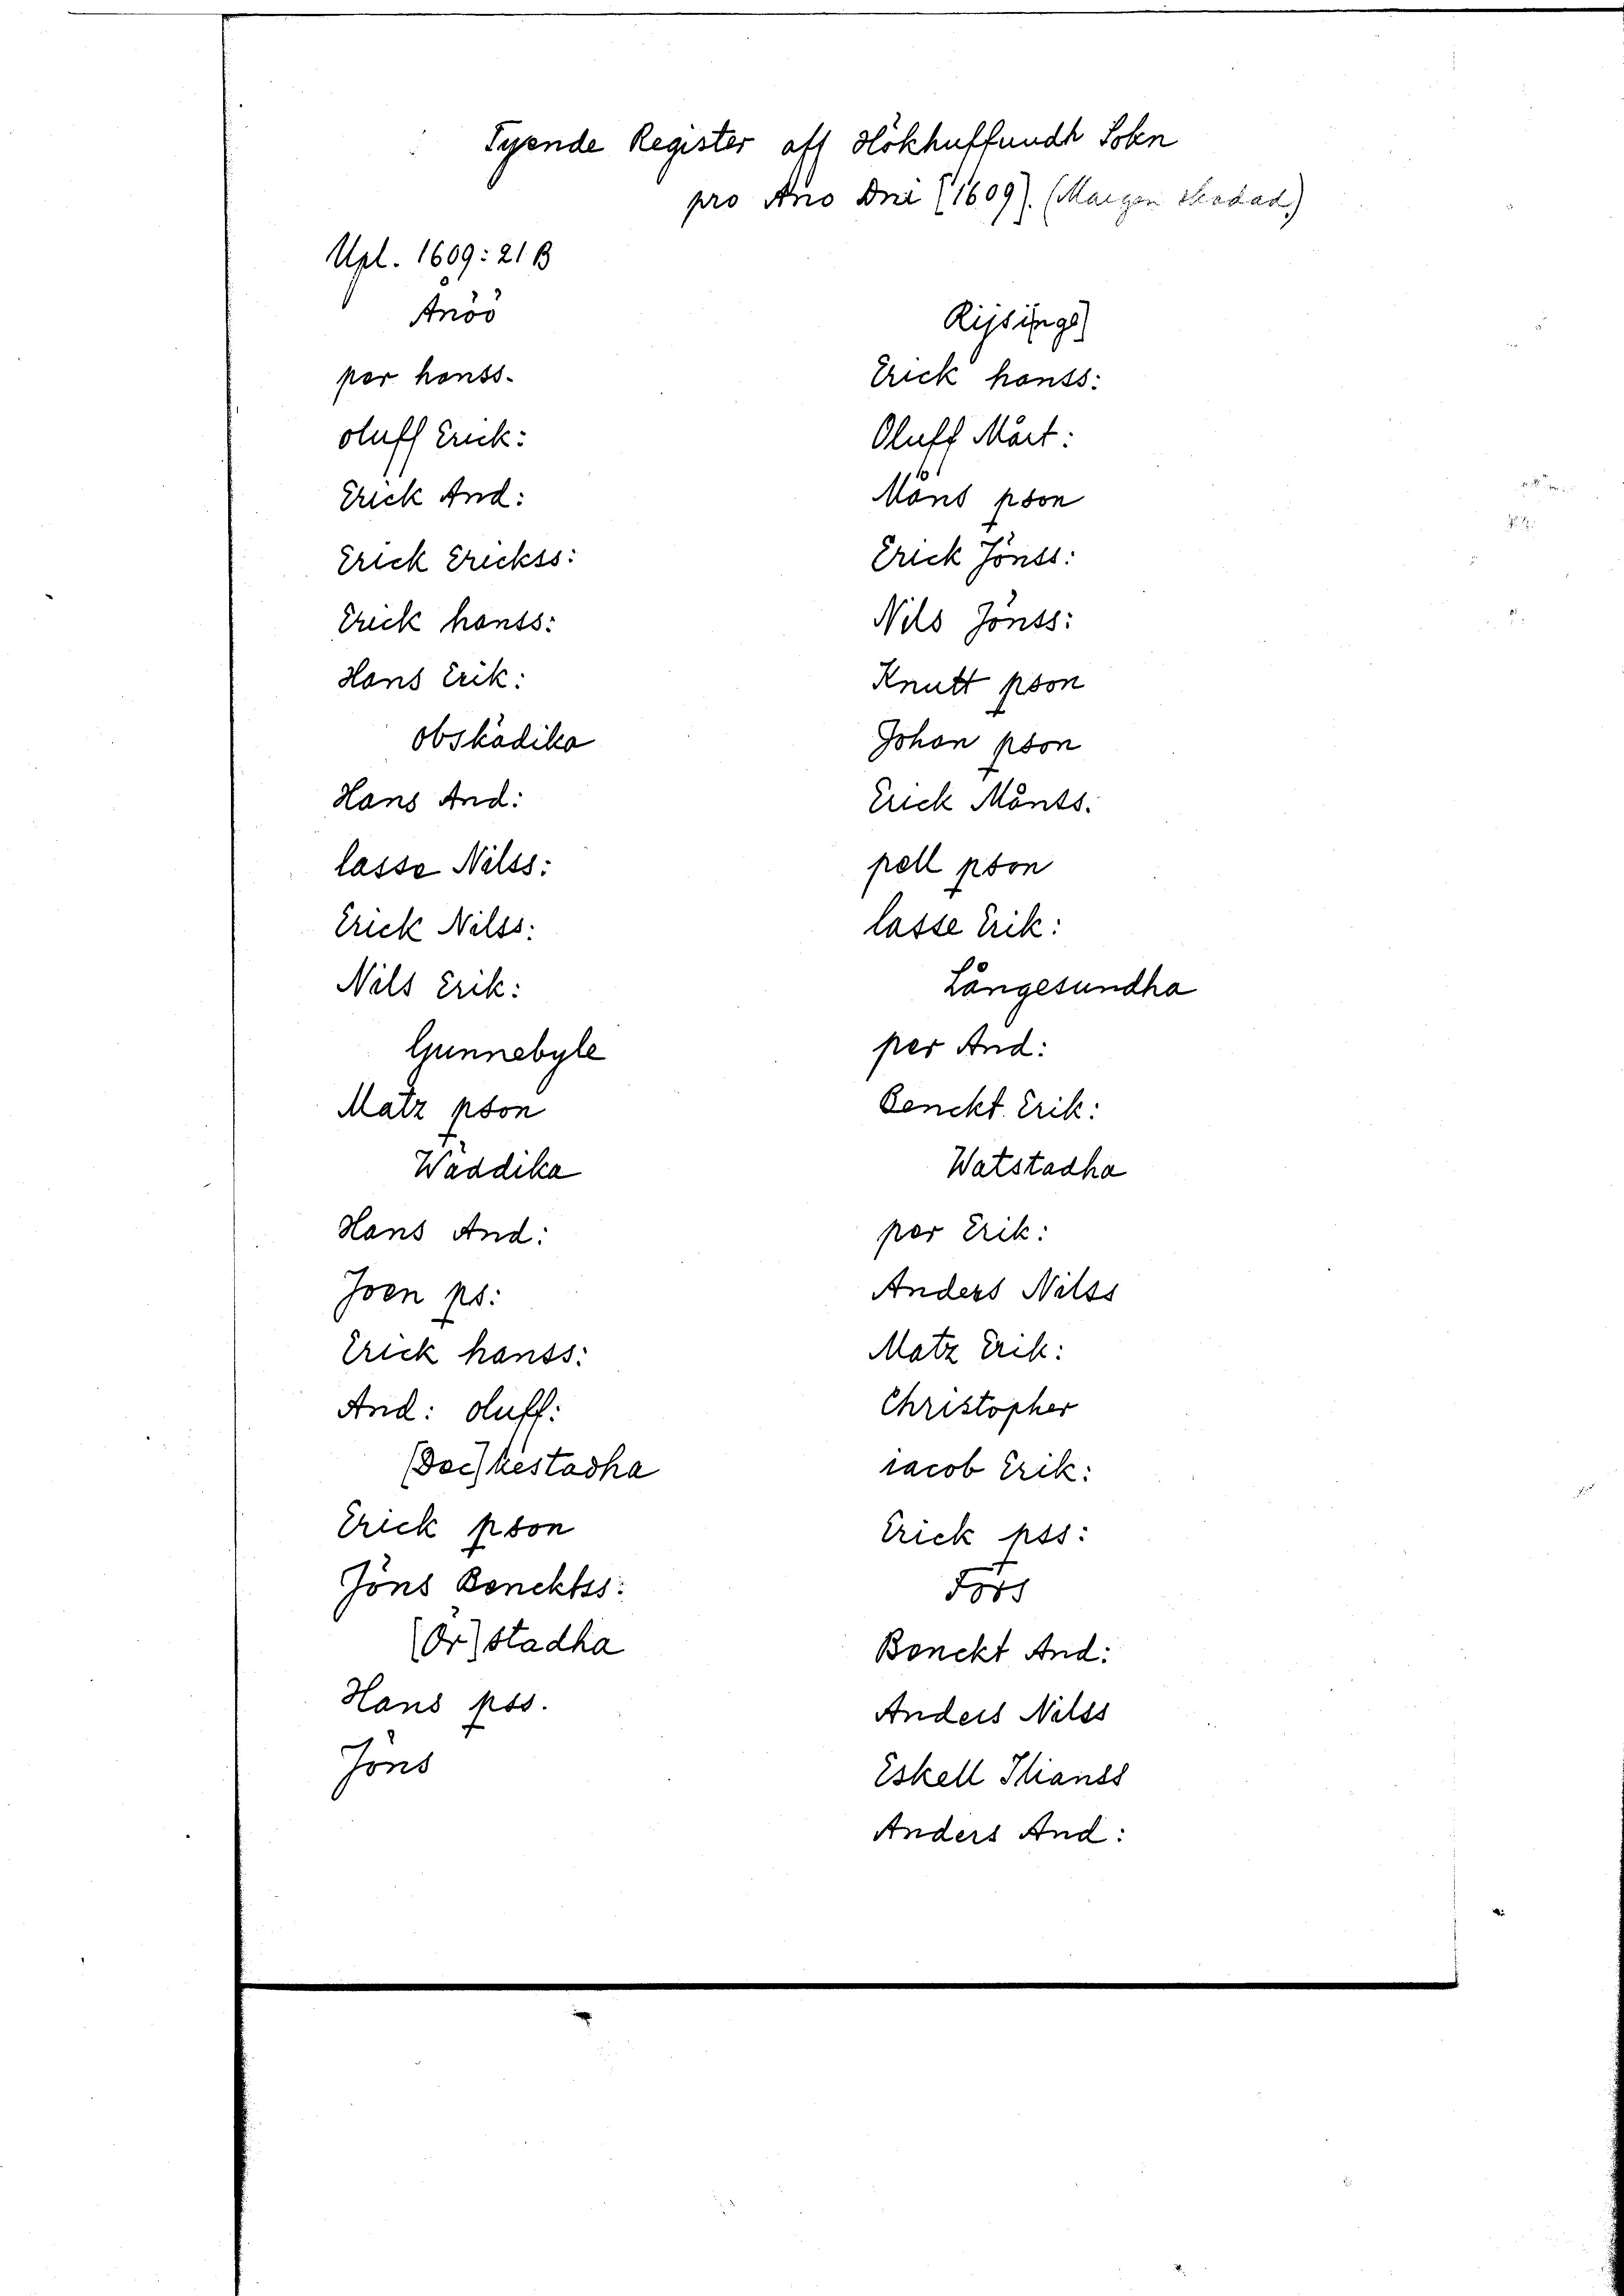 Tyende Register aff Hökhuffundh Sokn
pro Ano Dni [1609]. (Margen skadad)
Upl. 1609: 21 B
Anöö
per hanss.
oluff Erick:
Erick And:
Erick Erickss:
Erick hanss:
Hans Erik:
obskädika
Hans And:
lasse Nilss:
Erick Nilss:
Nils Erik:
Gunnebyle
Matz pson
Wäddika
Hans And:
Joen ps:
Erick hanss:
And: oluff:
[Doc]kestadha
Erick pson
Jöns Bencktss:
[Ör]stadha
Hans pss.
Jöns
Rijsinge]
Erick hanss:
Oluff Mårt:
Måns pson
Erick Jönss:
Nils Jönss:
Knutt pson
Johan pson
Erick Månss.
pell pson
lasse Erik:
Långesundha
per And:
Benckt Erik:
Watstadha
per Erik:
Anders Nilss
Matz Erik:
Christopher
iacob Erik:
Erick pss:
Förs
Benckt And:
Anders Nilss
Eskell
Anders And: